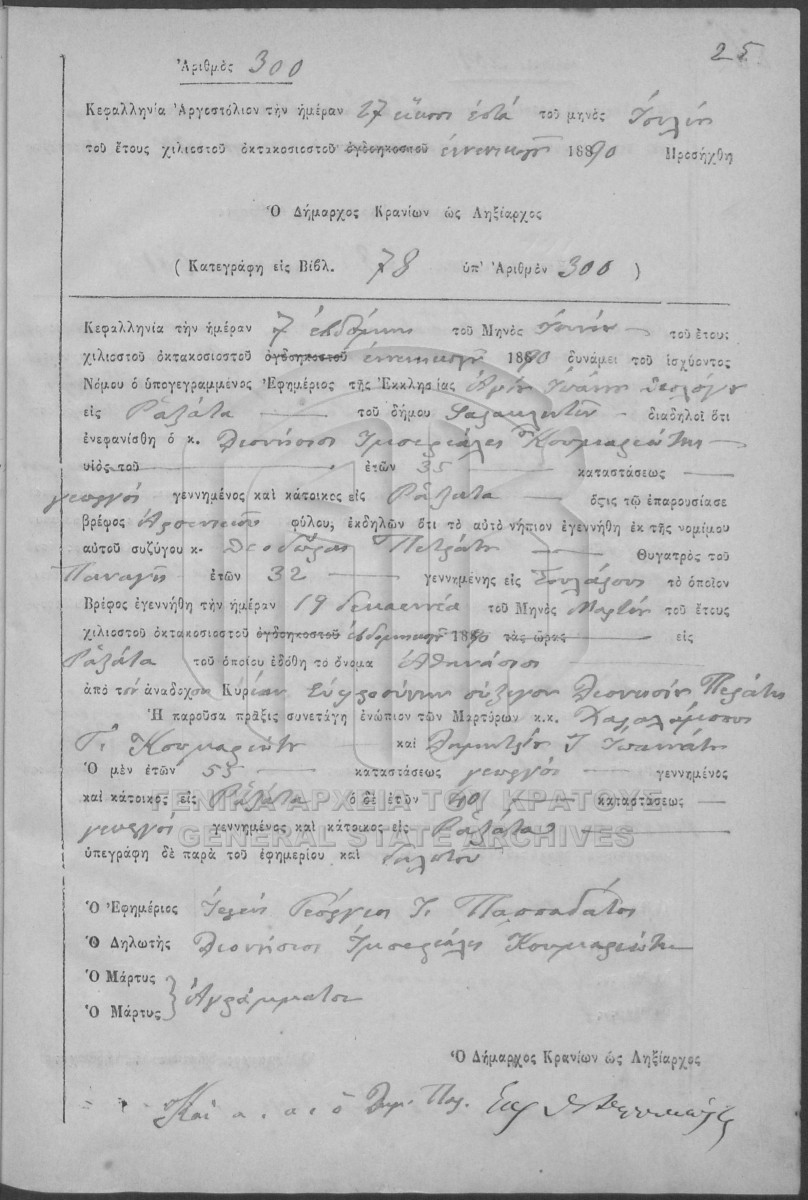 25
Ἀριθμὸς 300
Κεφαλληνία Ἀργοστόλιον τὴν ἡμέραν 27 εἴκοσι ἑπτά τοῦ μηνὸς Ἰουλίου
τοῦ ἔτους χιλιοστοῦ ὀκτακοσιοστοῦ ὀγδοηκοστοῦ ἐννενηκοστοῦ 1890 Προσήχθη
Ὁ Δήμαρχος Κρανίων ὡς Ληξίαρχος
(Κατεγράφη εἰς Βιβλ. 78 ὑπ' Ἀριθμὸν 300)
Κεφαλληνία τὴν ἡμέραν 7 ἑβδόμην τοῦ Μηνὸς τοῦ ἔτους
χιλιοστοῦ ὀκτακοσιοστοῦ ὀγδοηκοστοῦ ἐννενηκοστοῦ 1890 δυνάμει τοῦ ἰσχύοντος
Νόμου ὁ ὑπογεγραμμένος Ἐφημέριος τῆς Ἐκκλησίας Ἁγίου Ἰωάννου Θεολόγου
εἰς Ραζάτα τοῦ δήμου διαδηλοῖ ὅτι
ἐνεφανίσθη ὁ κ. Διονήσιος Κουμαριώτης
υἱὸς τοῦ ἐτῶν 35 καταστάσεως
γεωργός γεννημένος καὶ κάτοικος εἰς Ραζάτα ὅςτις τῷ ἐπαρουσίασε
βρέφος Ἀρσενικοῦ φύλου, ἐκδηλῶν ὅτι τὸ αὐτὸ νήπιον ἐγεννήθη ἐκ τῆς νομίμου
αὐτοῦ συζύγου κ. Θεοδώρας Πετράτου Θυγατρὸς τοῦ
Παναγῆ ἐτῶν 32 γεννημένης εἰς τὸ ὁποῖον
Βρέφος ἐγεννήθη τὴν ἡμέραν 19 δεκαεννέα τοῦ Μηνὸς Μαρτίου τοῦ ἔτους
χιλιοστοῦ ὀκτακοσιοστοῦ ὀγδοηκοστοῦ τὰς ὥρας εἰς
Ραζάτα τοῦ ὁποίου ἐδόθη τὸ ὄνομα Ἀθηνάσιος
ἀπὸ τὸν ἀνάδοχον Κυρίαν Εὐφροσύνην σύζυγον Διονυσίου
Ἡ παροῦσα πρᾶξις συνετάγη ἐνώπιον τῶν Μαρτύρων κ.κ. Χαραλάμπους
Γ. Κουμαριώτη καὶ Δημητρίου
Ὁ μὲν ἐτῶν 55 καταστάσεως γεωργός γεννημένος
καὶ κάτοικος εἰς Ραζάτα ὁ δὲ ἐτῶν 40 καταστάσεως
γεωργός γεννημένος καὶ κάτοικος εἰς Ραζάτα
ΓΕΝΙΚΑ ΑΡΧΕΙΑ ΤΟΥ ΚΡΑΤΟΥΣ
GENERAL STATE ARCHIVES
ὑπεγράφη δὲ παρὰ τοῦ ἐφημερίου καὶ
Ὁ Ἐφημέριος Ἱερεύς Γεόργιος
Ὁ Δηλωτὴς Διονήσιος Κουμαριώτης
Ὁ Μάρτυς
Ὁ Μάρτυς } Ἀγράμματοι
Ὁ Δήμαρχος Κρανίων ὡς Ληξίαρχος